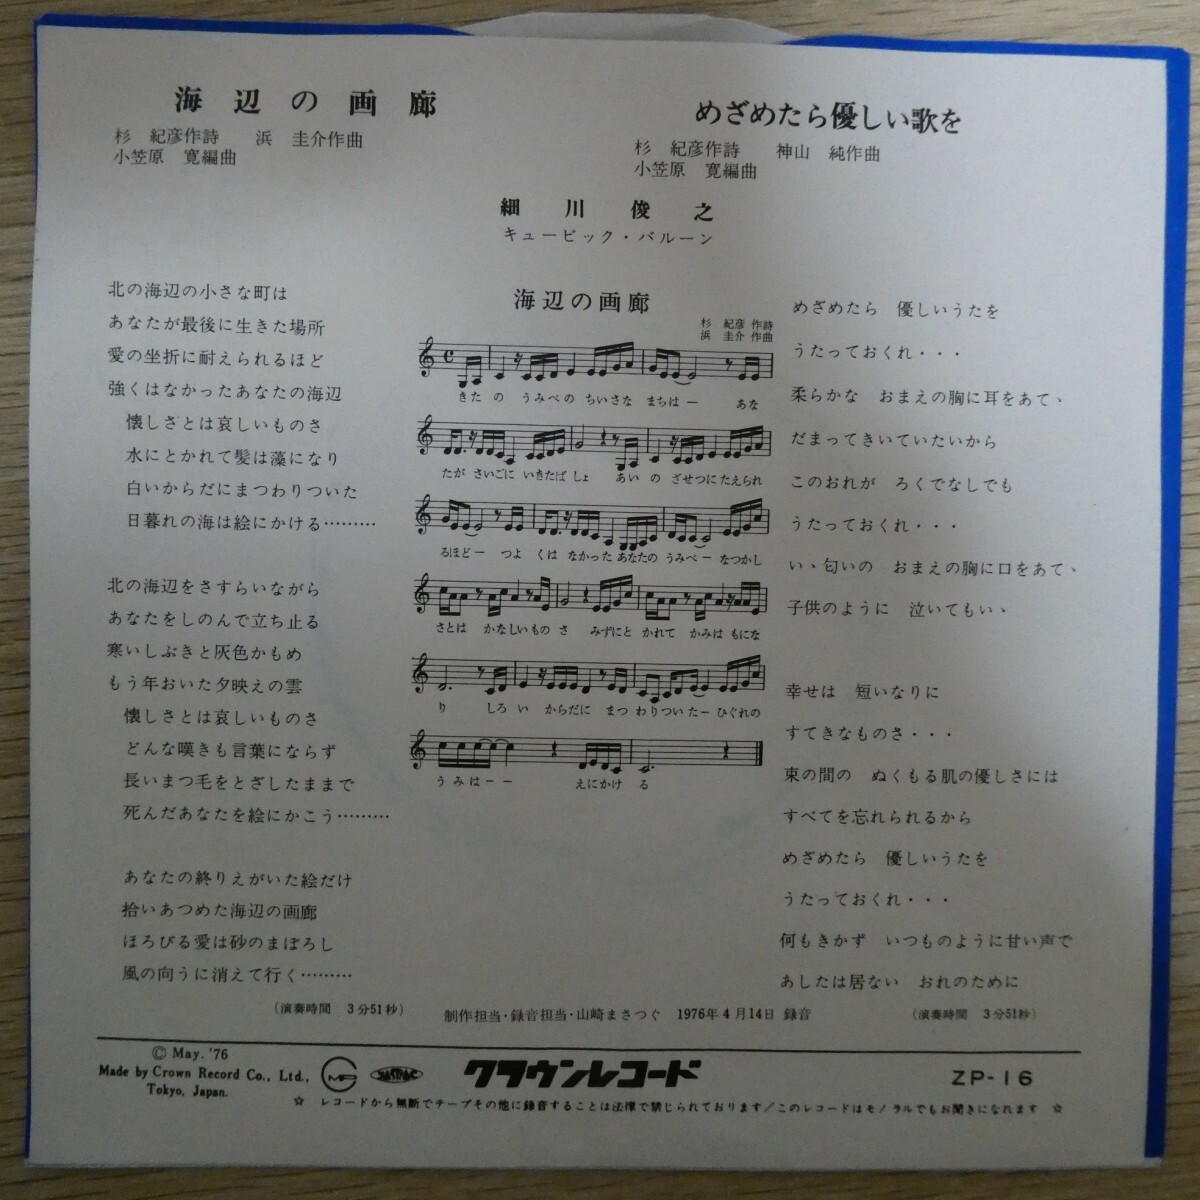 海辺の画廊
杉 紀彦作詩 浜 圭介作曲
小笠原 寛編曲
めざめたら優しい歌を
杉 紀彦作詩 神山 純作曲
小笠原 寛編曲
細川俊之
キュービック・バルーン
北の海辺の小さな町は
あなたが最後に生きた場所
愛の坐折に耐えられるほど
強くはなかったあなたの海辺
懐しざとは哀しいものさ
水にとかれて髪は藻になり
白いからだにまつわりついた
日暮れの海は絵にかける………
北の海辺をさすらいながら
あなたをしのんで立ち止る
寒いしぶきと灰色かもめ
もう年おいた夕映えの雲
懐しさとは哀しいものさ
どんな嘆きも言葉にならず
長いまつ毛をとざしたままで
死んだあなたを絵にかこう………
あなたの終りえがいた絵だけ
拾いあつめた海辺の画廊
ほろびる愛は砂のまぼろし
風の向うに消えて行く………
(演奏時間 3分51秒)
海辺の画廊
杉 紀彦 作詩
浜 圭介 作曲
きたの うみべの ちいさな まちはー あな
たが さいごに いきたば しょ あい の ざせつに たえられ
るほどー つよ くは なかった あなたの うみべー なつかし
さとは かなしいもの さ みずにと かれて かみは もにな
り しろ い からだに まつ わりついたー ひぐれの
うみはーー えにかけ る
めざめたら 優しいうたを
うたっておくれ・・・
柔らかな おまえの胸に耳をあて、
だまってきいていたいから
このおれが ろくでなしでも
うたっておくれ・・・
い、匂いの おまえの胸に口をあて、
子供のように 泣いてもい、
幸せは 短いなりに
すてきなものさ・・・
束の間の ぬくもる肌の優しさには
すべてを忘れられるから
めざめたら 優しいうたを
うたっておくれ・・・
何もきかず いつものように甘い声で
あしたは居ない おれのために
(演奏時間 3分51秒)
制作担当・録音担当・山崎まさつぐ 1976年4月14日 録音
Ⓒ May. '76
Made by Crown Record Co., Ltd.,
Tokyo, Japan.
クラウンレコード
ZP-16
☆ レコードから無断でテープその他に録音することは法律で禁じられております/このレコードはモノラルでもお聞きになれます ☆